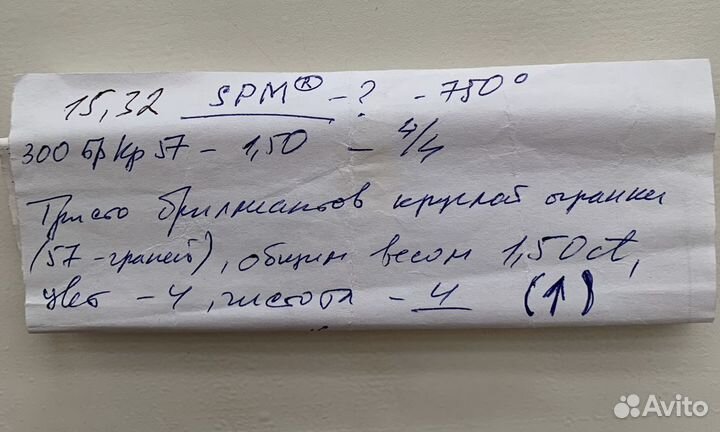 15,32 SPM® - ? - 750°
300 Бр Кр 57 - 1,50 - 4/4
Триста бриллиантов круглой огранки
(57 - граней), общим весом 1,50 ct,
цвет - 4, чистота - 4 (↑)
Avito